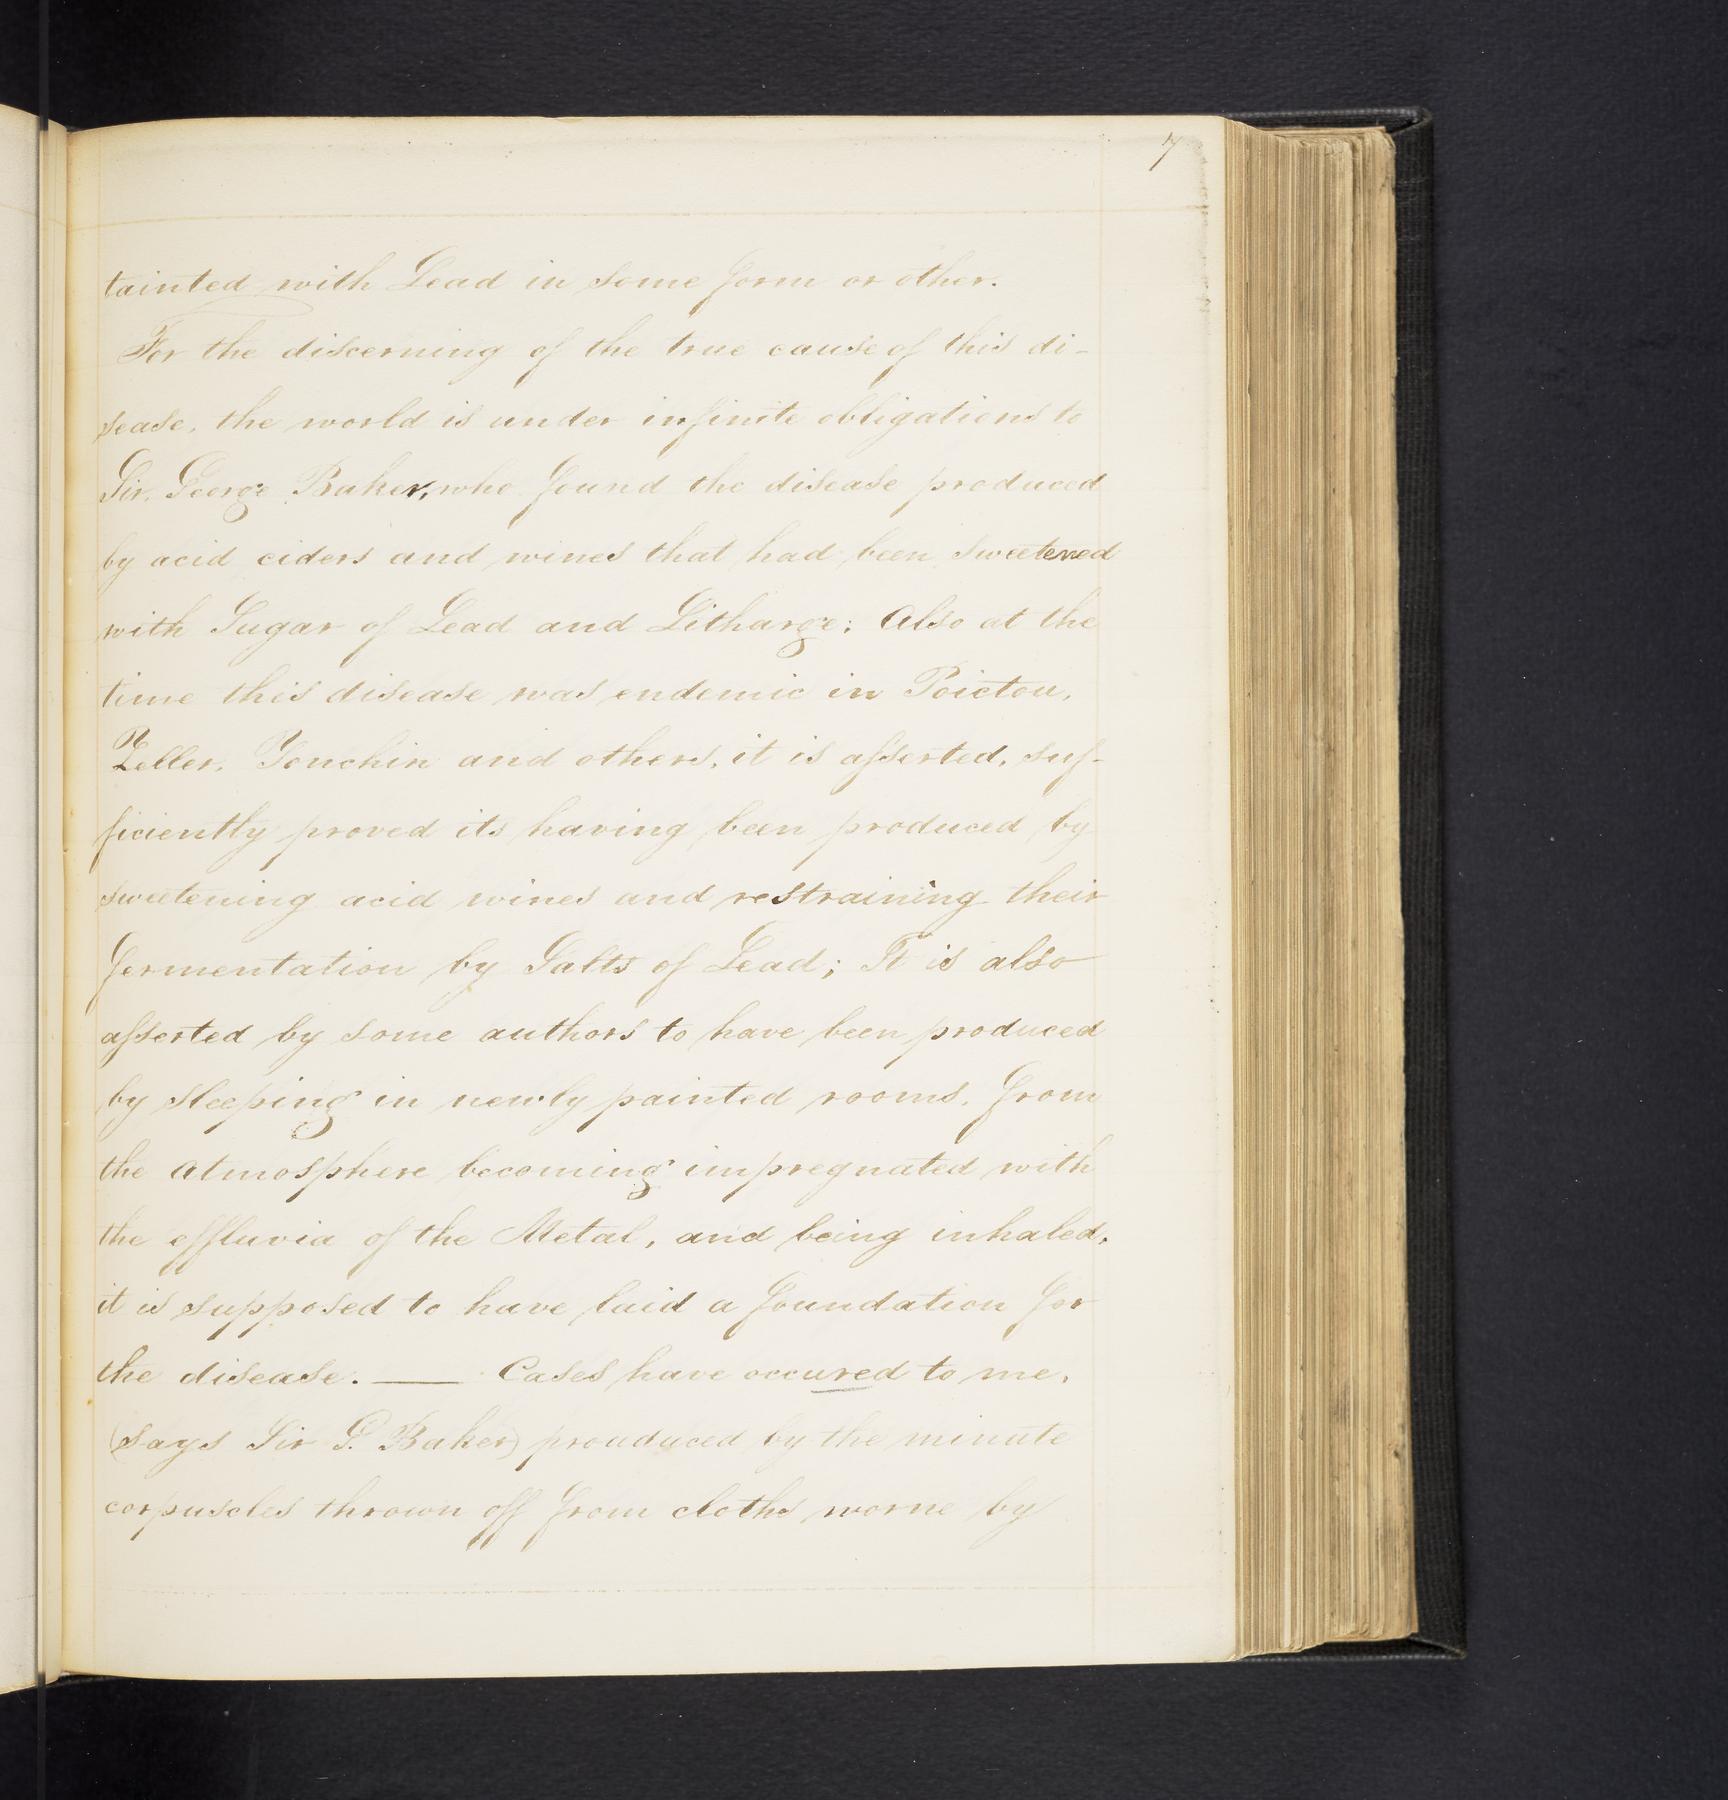 7
tainted with Lead in some form or other.
For the discerning of the true cause of this di-
sease, the world is under infinite obligations to
Sir. George Baker, who found the disease produced
by acid ciders and wines that had been sweetened
with Sugar of Lead and Litharge; Also at the
time this disease was endemic in Poictou,
Zeller, Tonchin and others, it is asserted, suf-
ficiently proved its having been produced by
sweetening acid wines and restraining their
fermentation by Salts of Lead; It is also
asserted by some authors to have been produced
by sleeping in newly painted rooms, from
the atmosphere becoming impregnated with
the effluvia of the Metal, and being inhaled,
it is supposed to have laid a foundation for
the disease. — Cases have occured to me,
(says Sir G. Baker) prouduced by the minute
corpuscles thrown off from cloths worne by